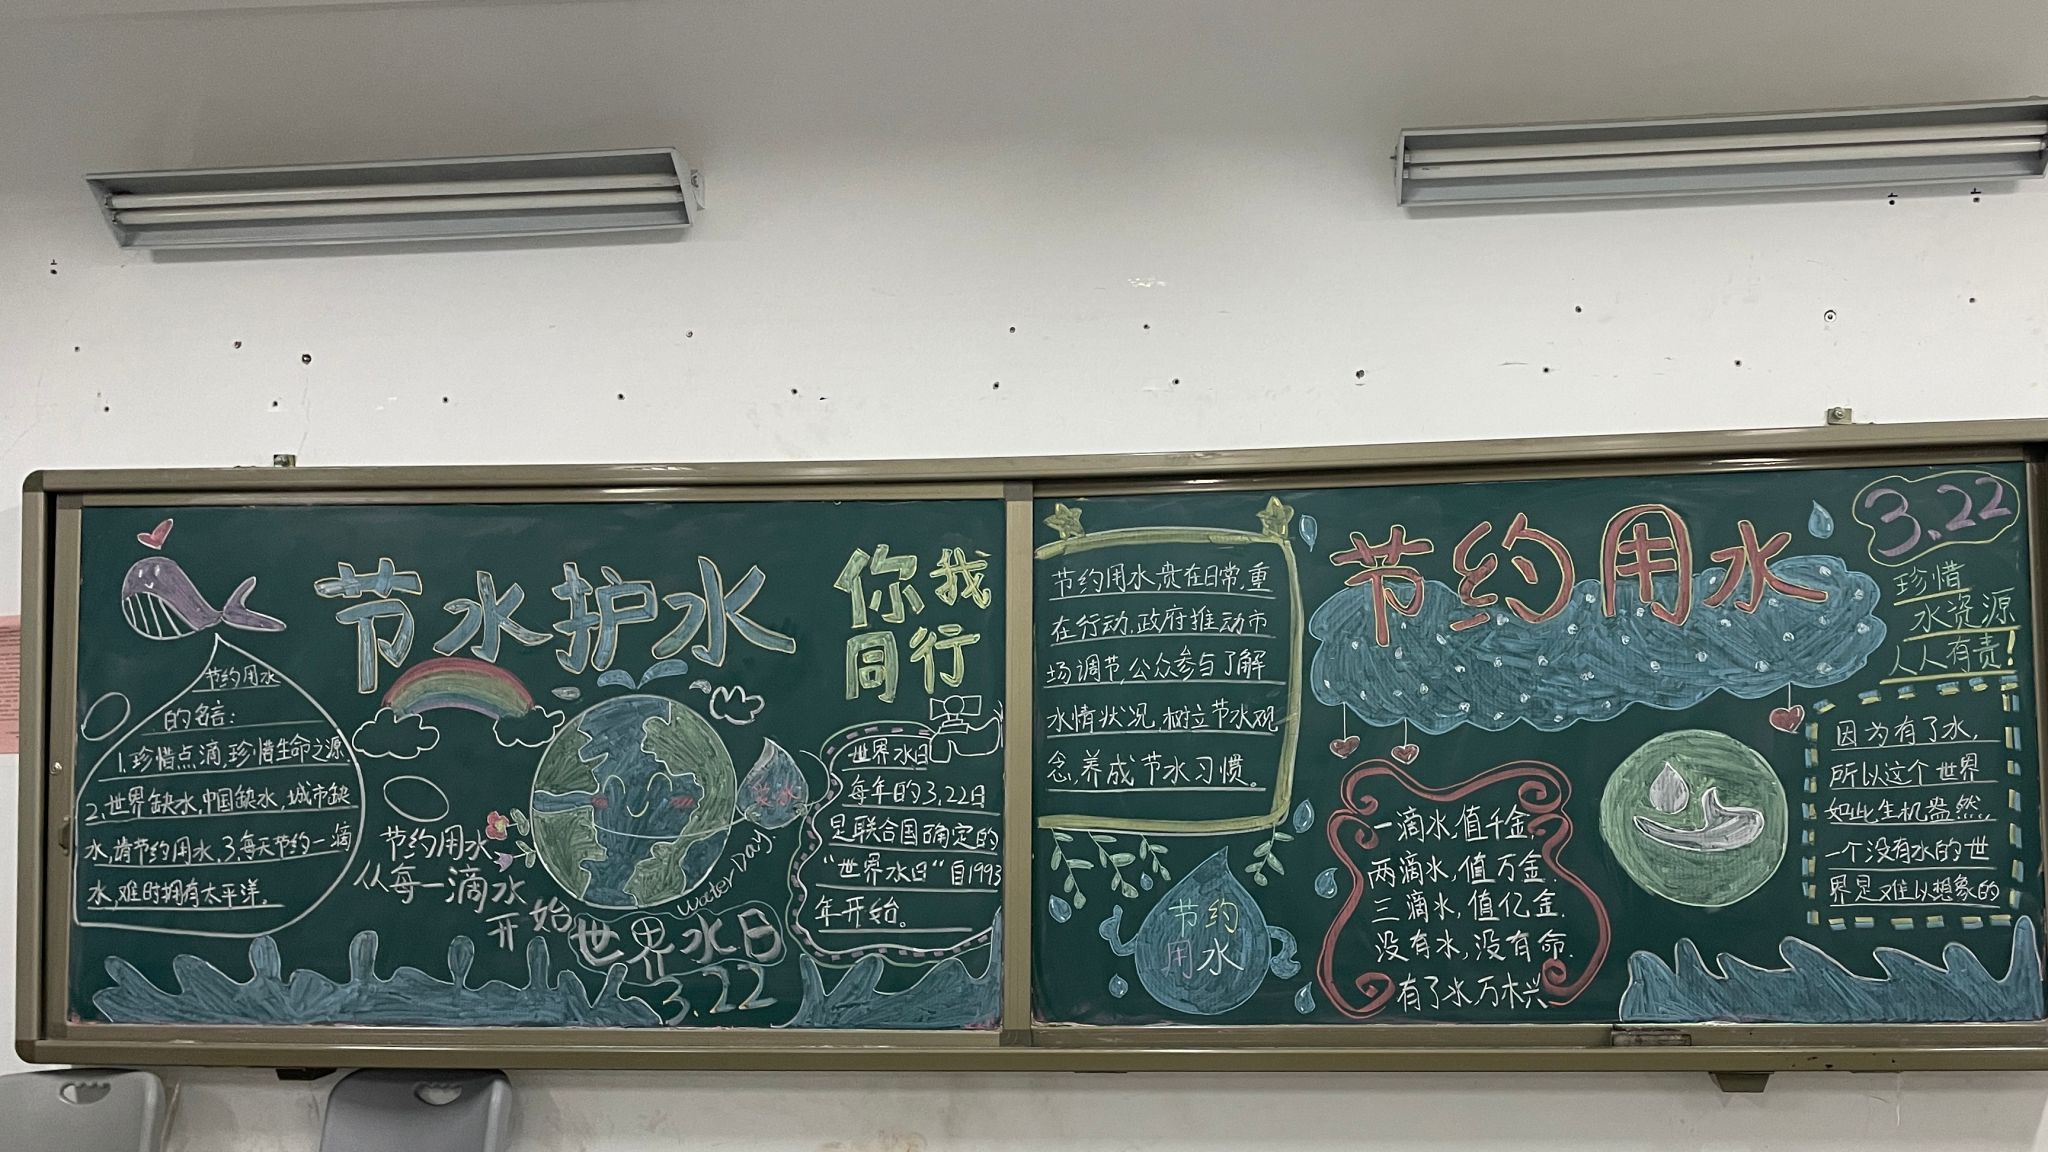 节水护水
你我
同行
节约用水
的名言：
1.珍惜点滴,珍惜生命之源.
2.世界缺水,中国缺水,城市缺
水,请节约用水.3.每天节约一滴
水,难时拥有太平洋.
节约用水
从每一滴水
开始
Water Day.
世界水日
3.22
世界水日
每年的3.22日
是联合国确定的
“世界水日“自1993
年开始。
节约用水,贵在日常,重
在行动.政府推动市
场调节,公众参与了解
水情状况,树立节水观
念,养成节水习惯。
节约
用水
节约用水
3.22
珍惜
水资源
人人有责!
一滴水,值千金,
两滴水,值万金.
三滴水,值亿金.
没有水,没有命.
有了水万木兴
因为有了水,
所以这个世界
如此生机盎然,
一个没有水的世
界是难以想象的